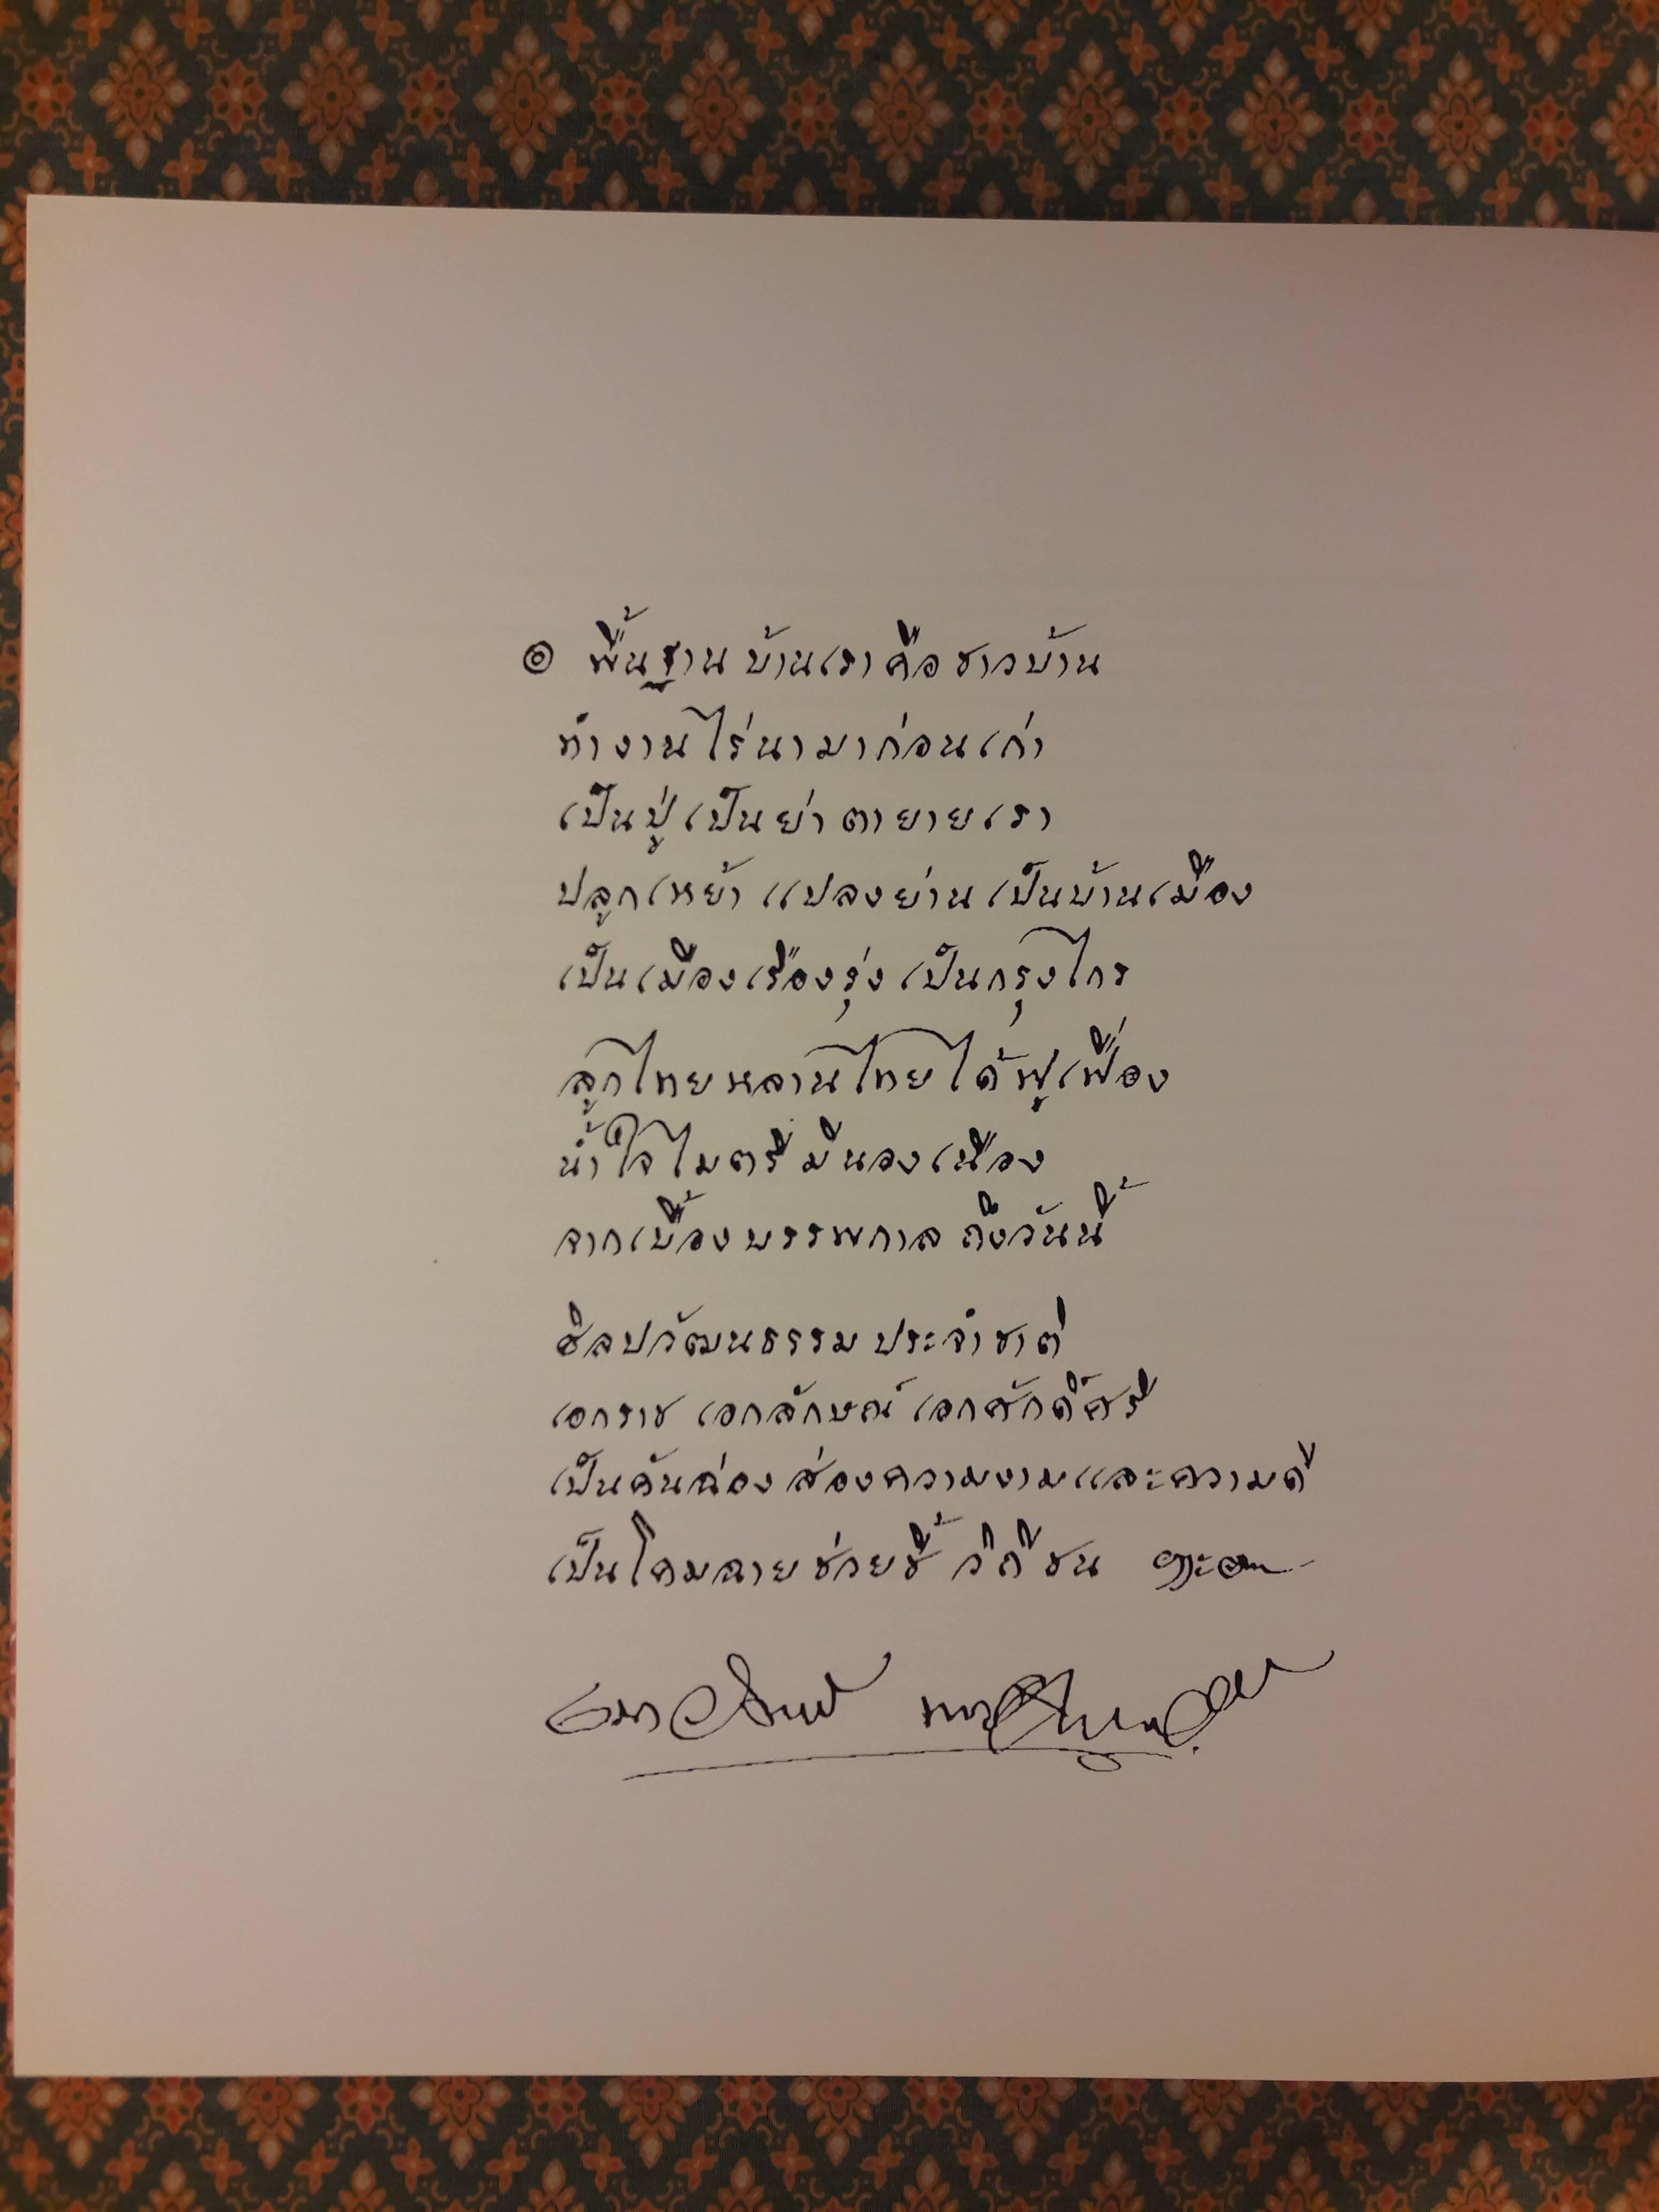 ๏ พื้นฐานบ้านเราคือชาวบ้าน
ทำงานไร่นามาก่อนเก่า
เป็นปู่เป็นย่าตายายเรา
ปลูกเหย้าแปลงย่านเป็นบ้านเมือง
เป็นเมืองเรืองรุ่งเป็นกรุงไกร
ลูกไทยหลานไทยได้ฟูเฟื่อง
น้ำใจไมตรีมีนองเนือง
จากเบื้องบรรพกาลถึงวันนี้
ศิลปวัฒนธรรมประจำชาติ
เอกราช เอกลักษณ์ เอกศักดิ์ศรี
เป็นคันฉ่องส่องความงามและความดี
เป็นโคมฉายช่วยชี้วิถีชน